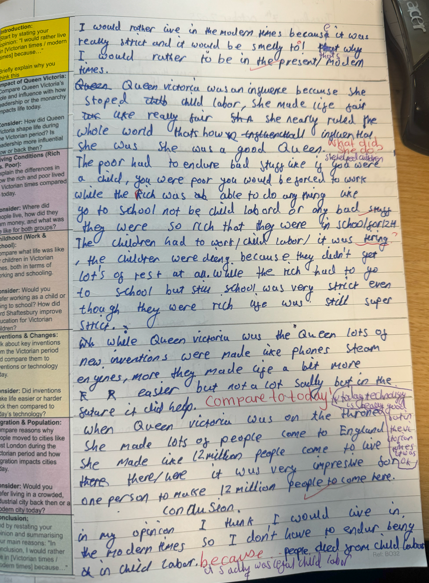 Introduction:
start by stating your
opinion: "I would rather live
in (Victorian times / modern
times) because ..."
Briefly explain why you
think this
Impact of Queen Victoria:
Compare Queen Victoria's
role and influence with how
leadership or the monarchy
impacts life today
Consider: How did Queen
Victoria shape life during
the Victorian period? Is
leadership more influential
now or back then?
Living Conditions (Rich
vs. Poor):
Explain the differences in
how the rich and poor lived
in Victorian times compared
to today.
Consider: Where did
people live, how did they
earn money, and what was
life like for both groups?
Childhood (Work &
School):
Compare what life was like
for children in Victorian
times, both in terms of
working and schooling.
Consider: Would you
prefer working as a child or
going to school? How did
Lord Shaftesbury improve
education for Victorian
children?
Inventions & Changes:
Talk about key inventions
from the Victorian period
and compare them to
inventions or technology
today.
Consider: Did inventions
make life easier or harder
back then compared to
today's technology?
Migration & Population:
Compare reasons why
people moved to cities like
London during the
Victorian period and how
migration impacts cities
today.
Consider: Would you
prefer living in a crowded,
industrial city back then or a
modern city today?
Conclusion:
Start by restating your
opinion and summarising
your main reasons. "In
conclusion, I would rather
live in (Victorian times /
modern times) because
I would rather live in the modern times because it was
really strict and it would be smelly to! thats why
I would rather to be in the present/modern
times.
Queen Queen victoria was an influence because she
stoped child labor, she made life fair
like really fair she nearly ruled the
whole world thats how influential.
She was She was a good Queen. What did
she do
The poor had to endure bad stuff like if you were
a child, you were poor you would be forced to work
while the Rich was able to do any thing like
go to school not be child labord or any bad stuff
they were so rich that they were in school
The children had to work/child labor/ it was tiring
, the children were dieng because they didn't get
lot's of rest at all. While the rich had to go
to school but still school was very strict even
though they were rich life was still super
strict.
While Queen victoria was the Queen lots of
new inventions were made like phones steam
engines, more they made life a bit more
easier but not a lot sadly but in the
future it did help. Compare to today!
When Queen victoria was on the throne
She made lots of people come to England
She made like 12 million people come to live
there/here it was very impresive for
one person to make 12 million people to come here.
conclusion.
in my opinion I think I would live in,
the modern times so I don't have to endure being
in child labor. because people died from child labor
it sadly was legal child labor